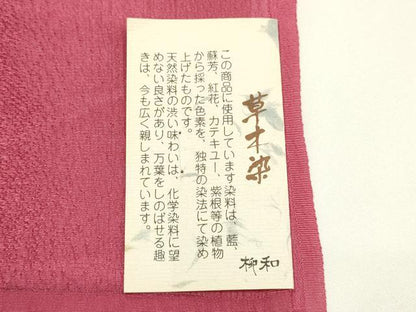 草木染
この商品に使用しています染料は、藍、
蘇芳、紅花、カテキュー、紫根等の植物
から採った色素を、独特の染法にて染め
上げたものです。
天然染料の渋い味わいは、化学染料に望
めない良さがあり、万葉をしのばせる趣
きは、今も広く親しまれています。
柳和